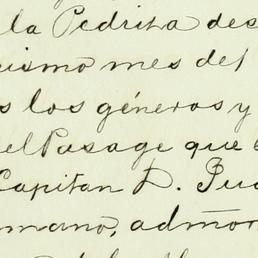 la Pedrita des
ismo mes del
s los géneros y
el Pasage que
Capitan D. Jua
mano, admor